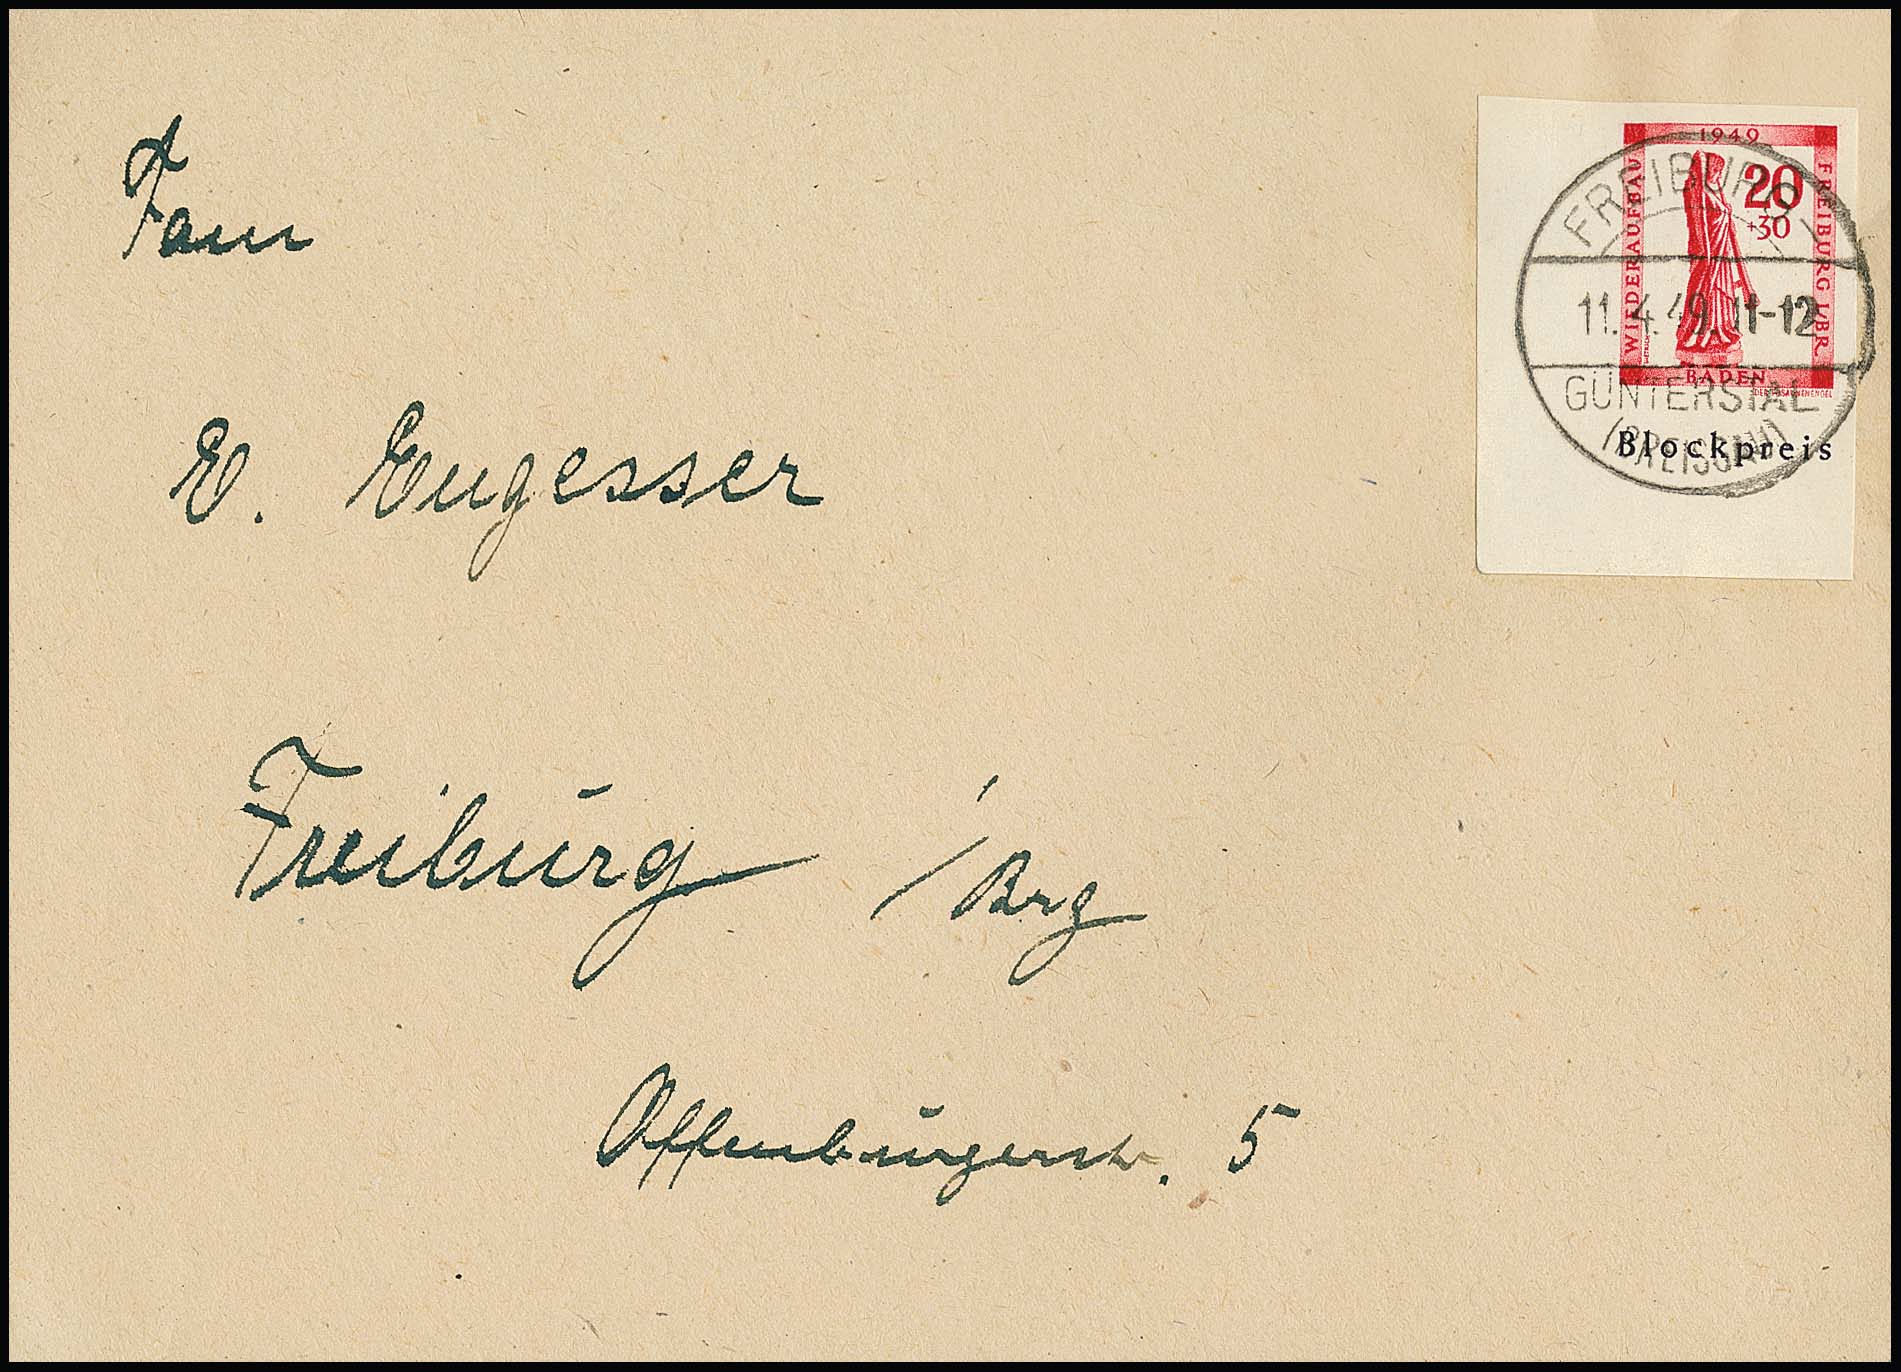 Fam
E. Engesser
Freiburg / Brg
Offenburgerstr. 5
1949
WIEDERAUFBAU
FREIBURG I/BR
20
+30
BADEN
Blockpreis
FREIBURG
11.4.49.11-12
GÜNTERSTAL
(BREISGAU)